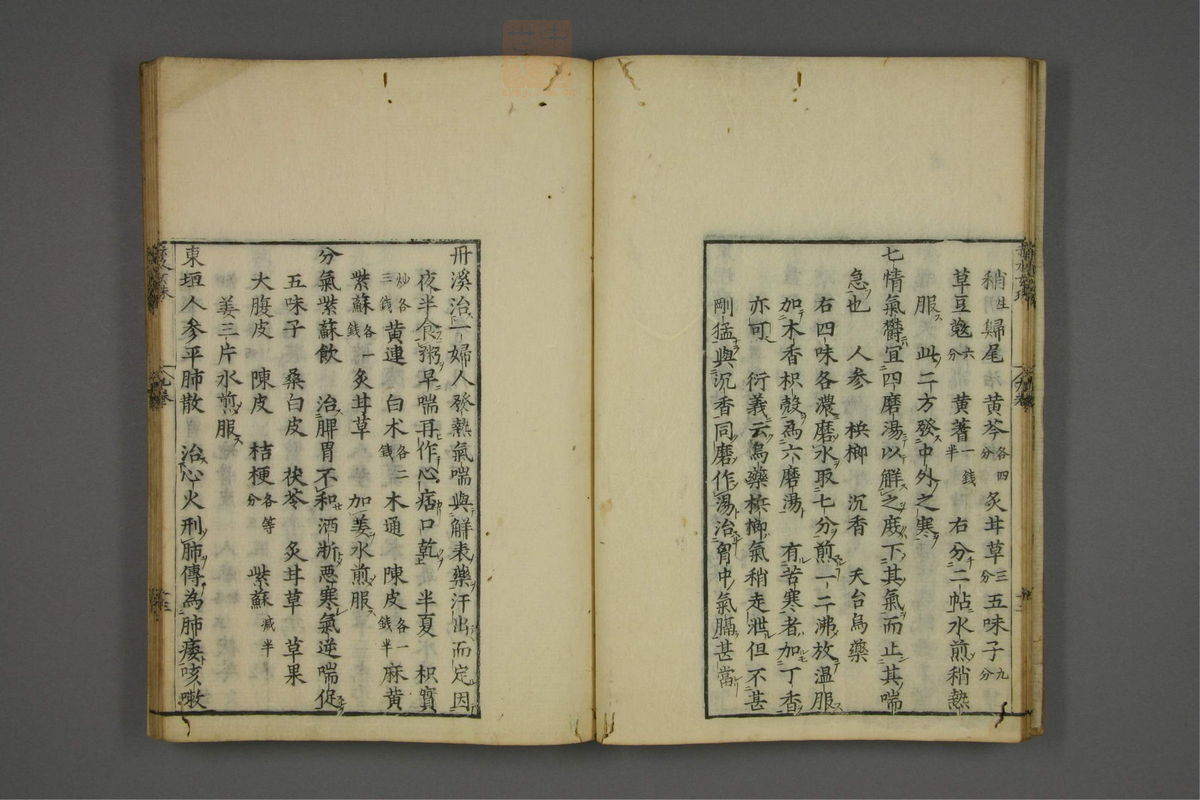 稍生歸尾 黄芩各四分炙甘草三分五味子九分
草豆蔻六分黄蓍一錢半 右分二帖水煎稍熱
服 此二方發中外之寒
七情氣欝宜四磨湯以解之庻下其氣而止其喘
急也 人参 梹榔 沉香 天台烏藥
右四味各濃磨水取七分煎一二沸放温服
加木香枳殻為六磨湯 有苦寒者加丁香
亦可 衍義云烏藥梹榔氣稍走泄但不甚
剛猛與沉香同磨作湯治胷中氣膈甚當
丹溪治一婦人發熱氣喘與解表藥汗出而定因
夜半食粥早喘再作心痞口乾 半夏 枳實
炒各三錢黄連 白术各二錢木通 陳皮各一錢半麻黄
紫蘇各一錢炙甘草 加姜水煎服
分氣紫蘇飲 治脾胃不和洒淅惡寒氣逆喘促
五味子 桑白皮 茯苓 炙甘草 草果
大腹皮 陳皮 桔梗各等分 紫蘇减半
姜三片水煎服
東垣人参平肺散 治心火刑肺傳為肺痿咳嗽